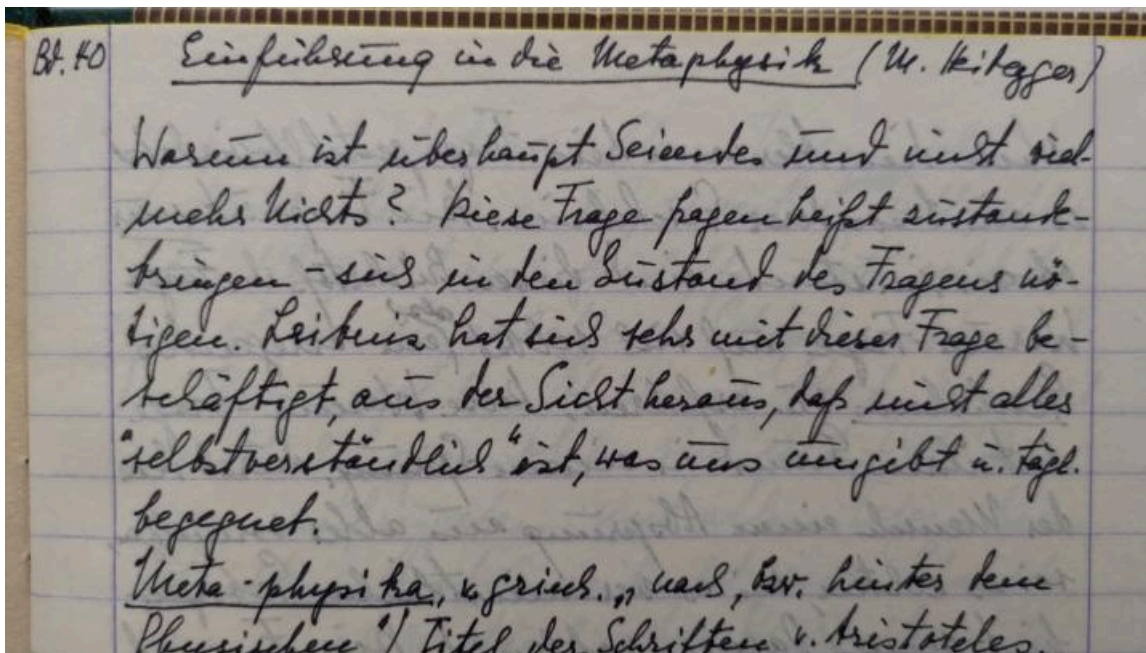 Bd. 40 Einführung in die Metaphysik (M. Heidegger)
Warum ist überhaupt Seiendes und nicht viel-
mehr Nichts? Diese Frage fragen heißt zustande-
bringen - sich in den Zustand des Fragens nö-
tigen. Leibniz hat sich sehr mit dieser Frage be-
schäftigt, aus der Sicht heraus, daß nicht alles
"selbstverständlich" ist, was uns umgibt u. tägl.
begegnet.
Meta-physika, griech. „nach, bzw. hinter dem
Physischen"/ Titel der Schriften v. Aristoteles.